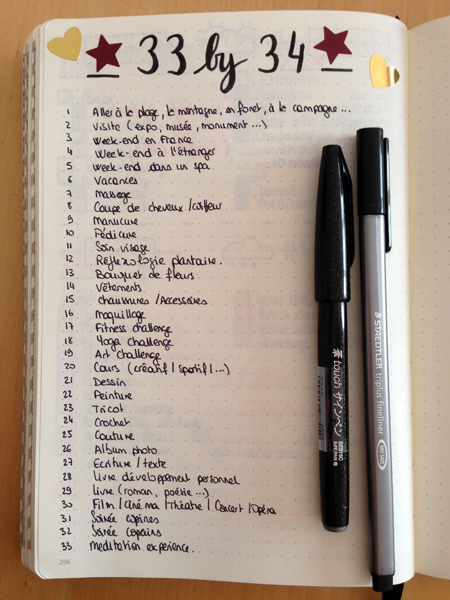 33 by 34
1 Aller à la plage, la montagne, en forêt, à la campagne...
2 Visite (expo, musée, monument...)
3 Week-end en France
4 Week-end à l'étranger
5 Week-end dans un spa
6 Vacances
7 Massage
8 Coupe de cheveux / coiffeur
9 Manucure
10 Pédicure
11 Soin visage
12 Réflexologie plantaire.
13 Bouquet de fleurs
14 Vêtements
15 chaussures / Accessoires
16 Maquillage
17 Fitness challenge
18 Yoga challenge
19 Art challenge
20 Cours (créatif / sportif /...)
21 Dessin
22 Peinture
23 Tricot
24 Crochet
25 Couture
26 Album photo
27 Ecriture / texte
28 Livre développement personnel
29 Livre (roman, poésie...)
30 Film / Cinéma / Théatre / Concert / Opéra
31 Soirée copines
32 Soirée copains
33 Meditation experience.
206
touch サインペン
STAEDTLER triplus fineliner